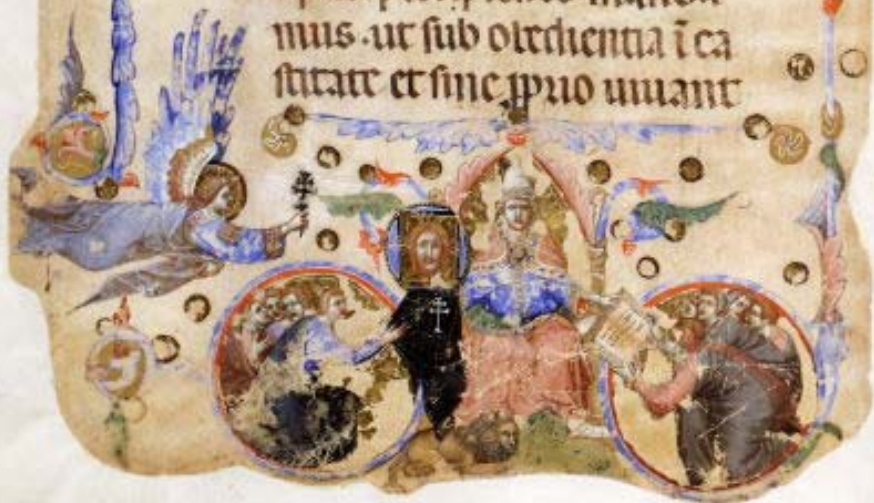 mus. ut sub obedientia i ca
stitate et sine pprio uiuant